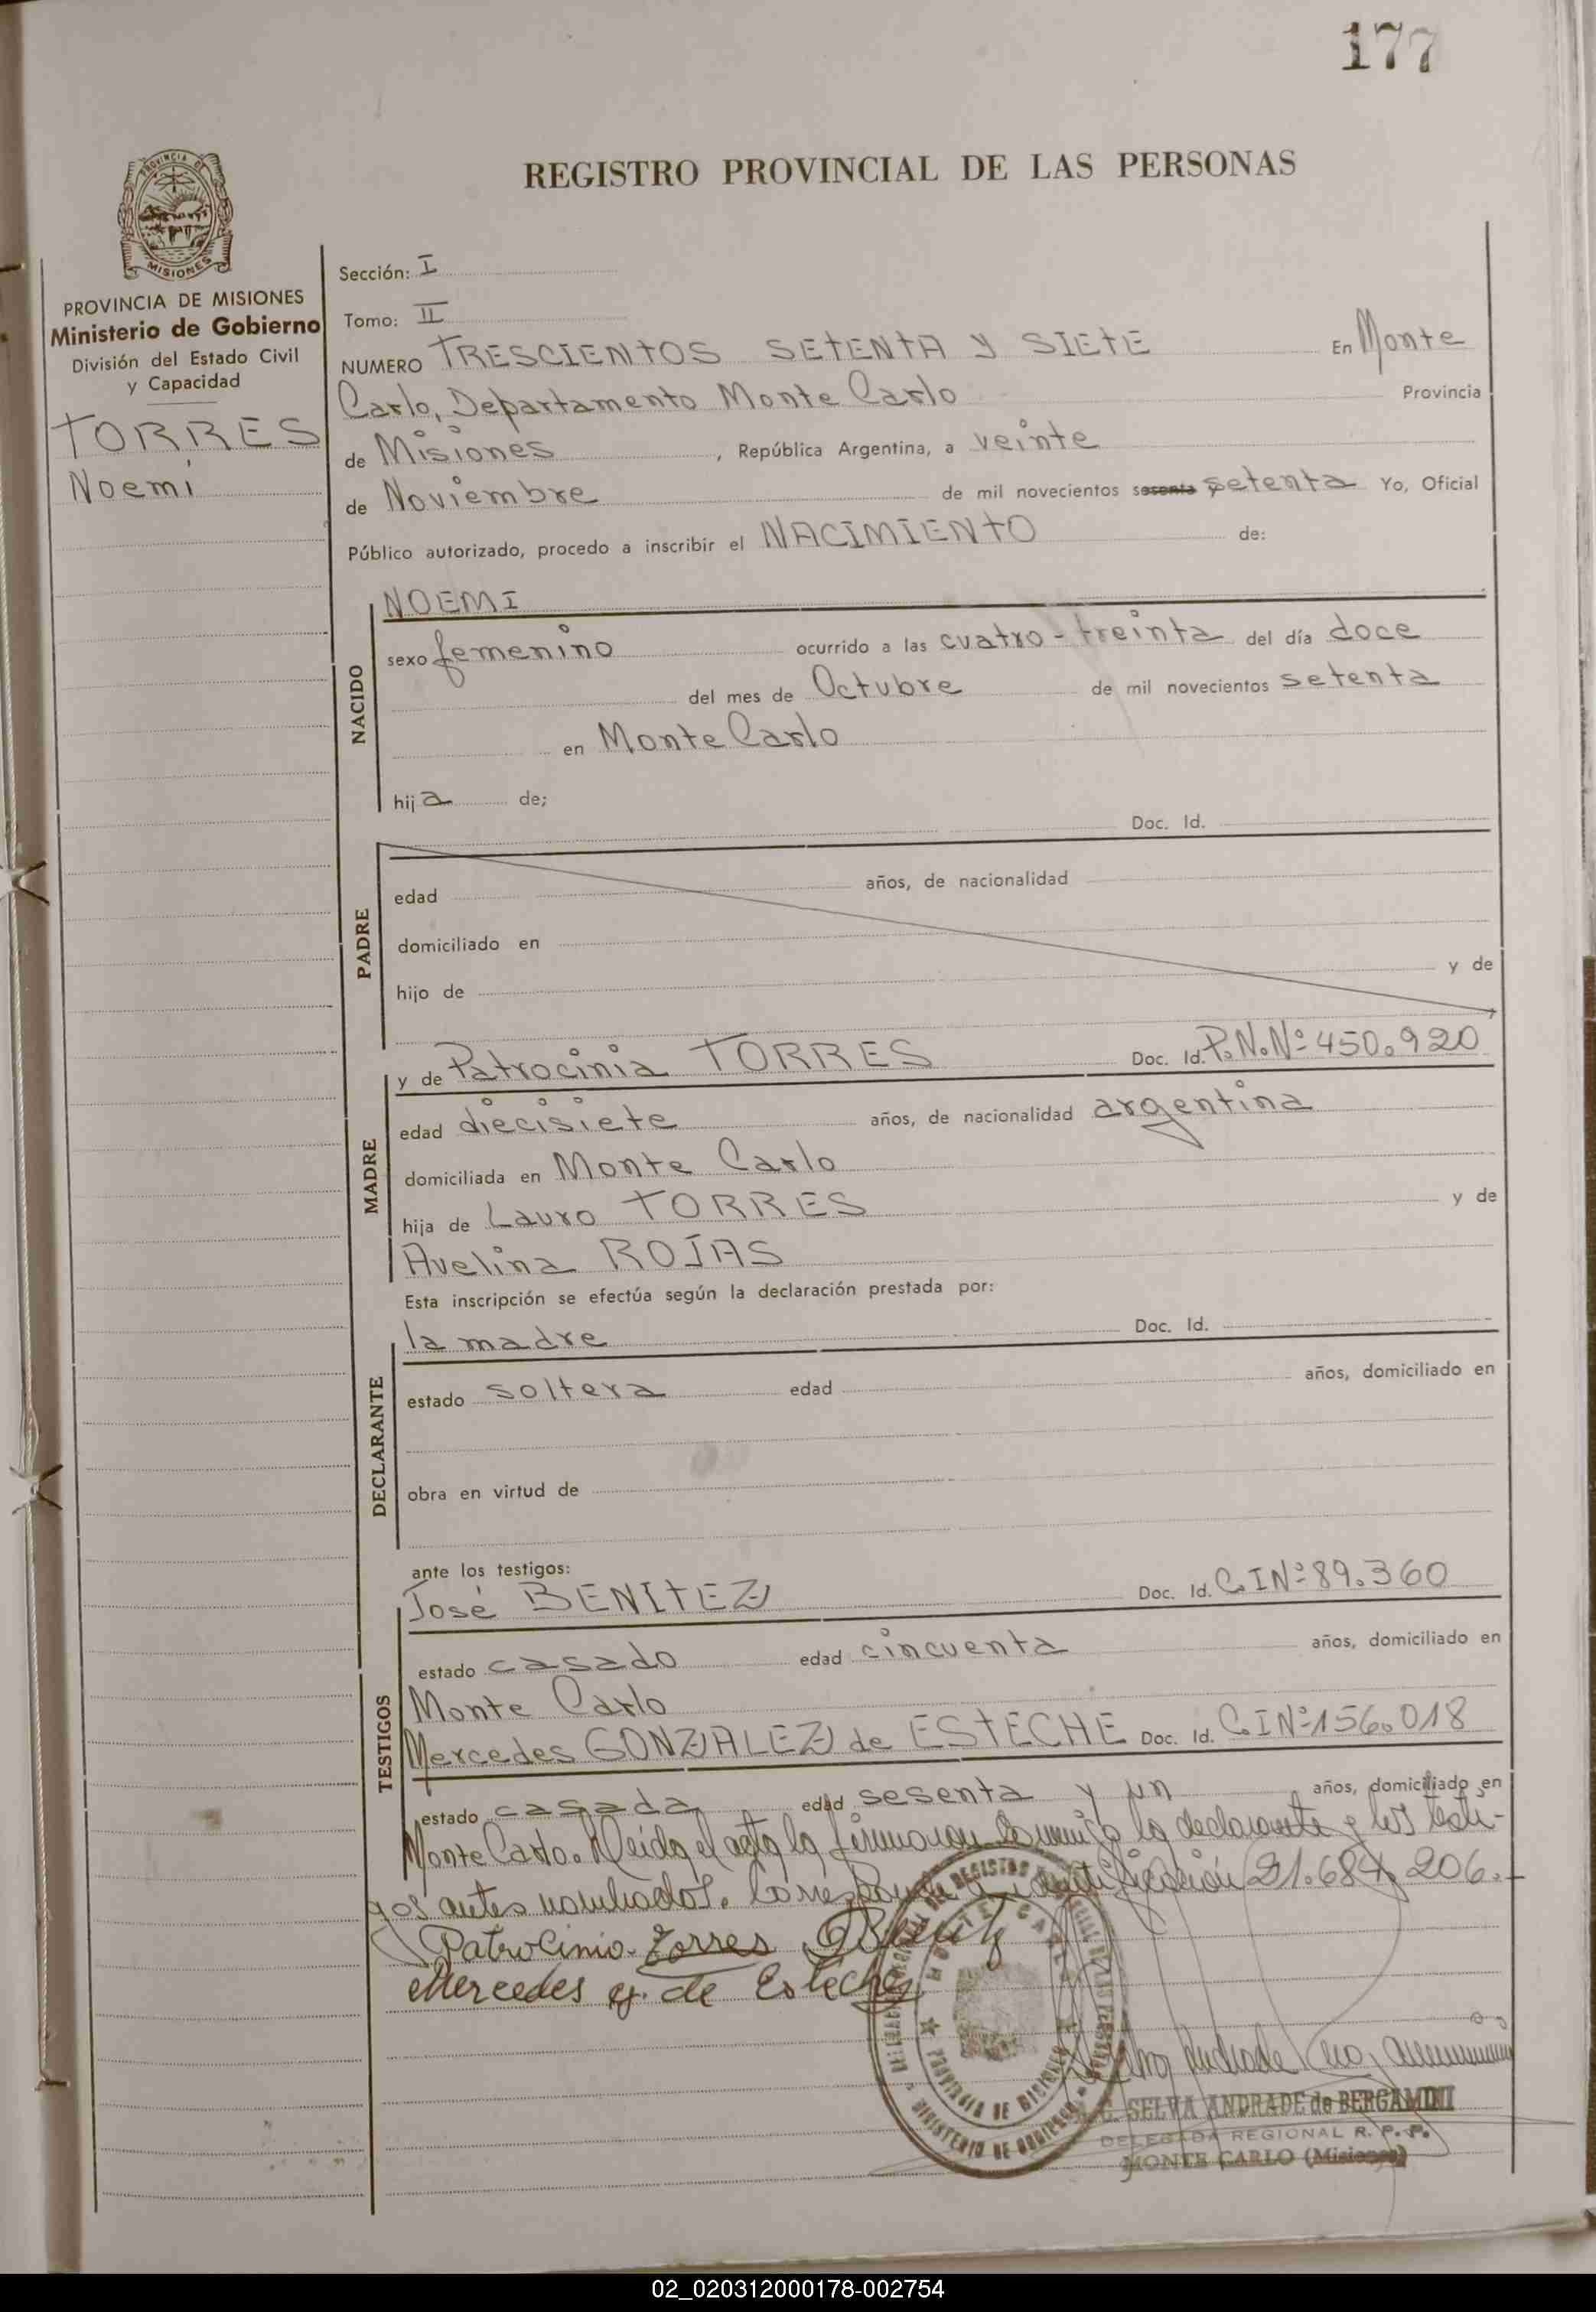 177
REGISTRO PROVINCIAL DE LAS PERSONAS
PROVINCIA DE
MISIONES
PROVINCIA DE MISIONES
Ministerio de Gobierno
División del Estado Civil
y Capacidad
TORRES
Noemí
Sección: I
Tomo: II
NUMERO TRESCIENTOS SETENTA Y SIETE En Monte
Carlo, Departamento Monte Carlo Provincia
de Misiones, República Argentina, a veinte
de Noviembre de mil novecientos sesenta setenta Yo, Oficial
Público autorizado, procedo a inscribir el NACIMIENTO de:
NACIDO
NOEMI
sexo femenino ocurrido a las cuatro-treinta del día doce
del mes de Octubre de mil novecientos setenta
en Monte Carlo
hija de;
Doc. Id.
PADRE
edad años, de nacionalidad
domiciliado en
hijo de y de
MADRE
y de Patrocinia TORRES Doc. Id. P.N.Nº 450.920
edad diecisiete años, de nacionalidad argentina
domiciliada en Monte Carlo
hija de Lauro TORRES y de
Avelina ROJAS
Esta inscripción se efectúa según la declaración prestada por:
DECLARANTE
la madre Doc. Id.
estado soltera edad años, domiciliado en
obra en virtud de
ante los testigos:
TESTIGOS
José BENITEZ Doc. Id. C.INº 89.360
estado casado edad cincuenta años, domiciliado en
Monte Carlo
Mercedes GONZALEZ de ESTECHE Doc. Id. C.INº 156.018
estado casada edad sesenta y un años, domiciliado en
Monte Carlo. Leida el acta la firmaron conmigo la declarante y los testi-
gos antes nombrados. Corresponde identificación 21.684.206.-
Patrocinia Torres
Mercedes g. de Esteche
MONTE CARLO
PROVINCIA DE MISIONES
MINISTERIO DE GOBIERNO
C. SELVA ANDRADE de BERGAMINI
DELEGADA REGIONAL R. P. P.
MONTE CARLO (Misiones)
02_020312000178-002754